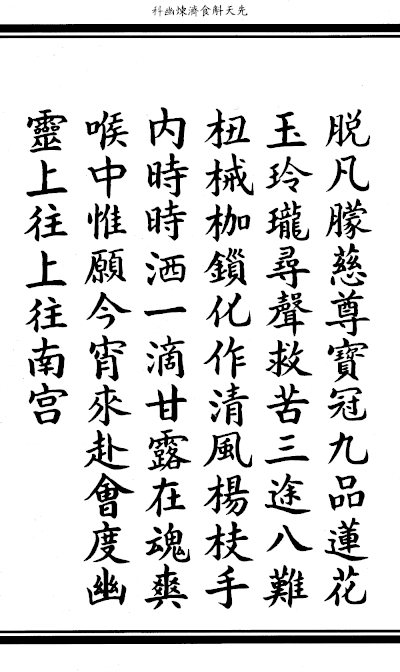 先天斛食濟煉幽科
脱凡朦慈尊寶冠九品蓮花
玉玲瓏尋聲救苦三途八難
杻械枷鎖化作清風楊枝手
内時時洒一滴甘露在魂爽
喉中惟願今宵來赴會度幽
靈上往上往南宫